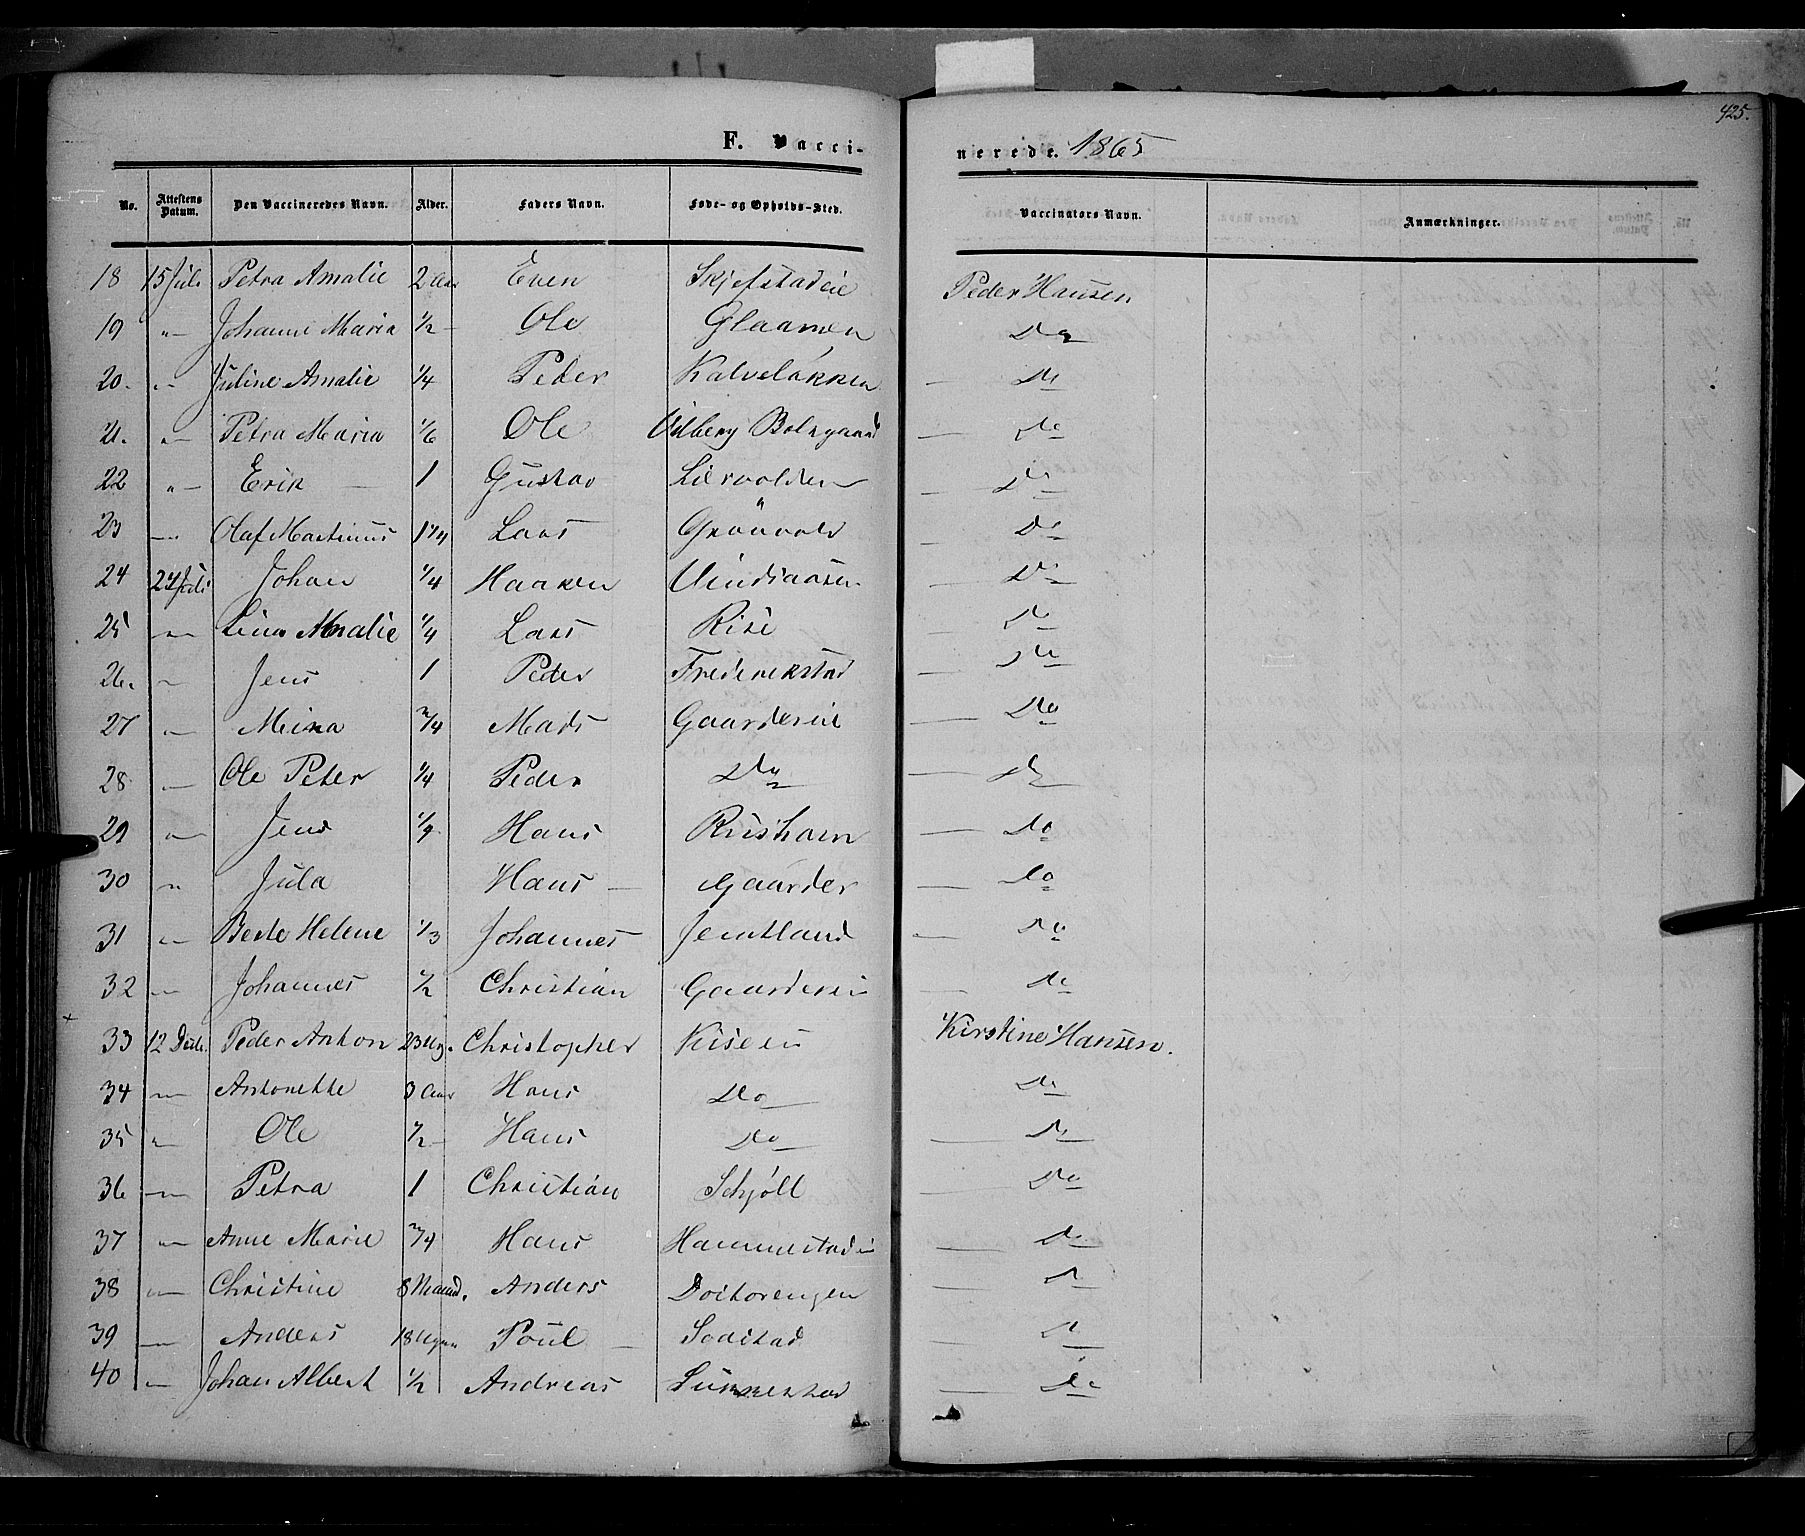 425.
F. Vacci-
nerede. 1865
No. Attestens Datum. Den Vaccineredes Navn. Alder. Faders Navn. Føde- og Opholds-Sted. Vaccinators Navn. Anmærkninger.
18 15 Juli Petra Amalie 2 Aar Even Skjefstadeie Peder Hansen
19 "- Johanne Maria 1/2 - Ole Glaamen Do
20. "- Juline Amalie 1/4 Peder Kalveløkken - Do
21. "- Petra Maria 1/6 Ole Vilberg - Do
22 "- Erik - 1 Gustav - Do
23 "- Olaf Martinus 1 1/4 Lars Grönvold - Do
24 24 Juli Johan 1/4 Haaken - Do
25 "- Lina Amalie 1/4 Lars Rise - Do
26. "- Jens 1 Peder Frederikstad - Do
27 "- Mina 3/4 Mads Gaardereie - Do
28 "- Ole Peter 1/4 Peder Do - Do
29 "- Jens Hans - Do
30 " Jula Hans - Gaarder - Do
31 "- Berte Helene 1/3 Johannes Jemtland - Do
32 "- Johannes 1/2 Christian Gaarderei - Do
33 12 Peder Anton 23 Ug. Christopher Kiseei Kirstine Hansen.
34 "- Antonette 3 Aar Hans Do Do
35 "- Ole 1/2 - Hans Do - Do
36 "- Petra 1 Christian Schjöll - Do
37 "- Anne Marie 3/4 Hans Hammestadei - Do
38 "- Christine 8 Maand. Anders Doctorengen - Do
39 "- Anders 18 Uger Poul - Sodstad - Do
40 "- Johan Albert 1/2 Andreas - Do